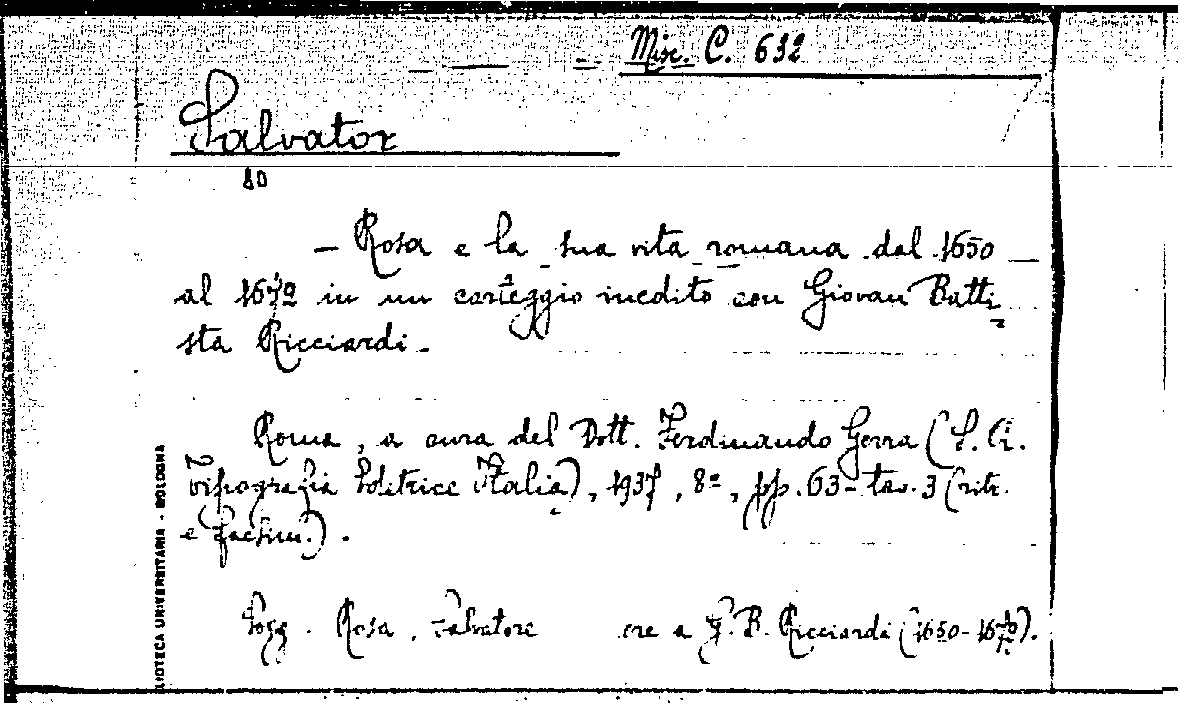 Misc. C. 632
Salvator
— Rosa e la sua vita romana dal 1650
al 1672 in un carteggio inedito con Giovan Batti
sta Ricciardi.
Roma, a cura del Dott. Ferdinando Gerra (S. A.
Tipografia Editrice Italia), 1937, 8º, pp. 63 - tav. 3 (ritr.
e facsim.).
Sogg. Rosa, Salvatore ere a G. B. Ricciardi (1650-1672).
LIOTECA UNIVERSITARIA - BOLOGNA